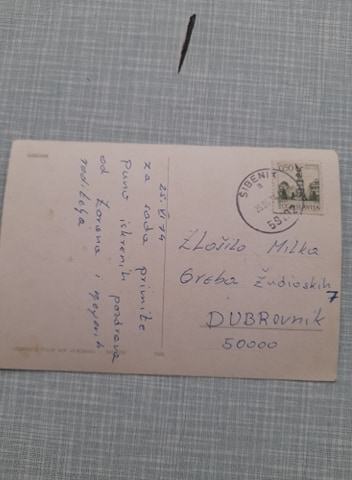 25. VI 74
za sada primite
puno iskrenih pozdrava
od Zorana i njegovih
roditelja
ŠIBENIK
59102
0,50
JUGOSLAVIJA
Zložilo Milka
Greba Žudioskih 7
DUBROVNIK
50000